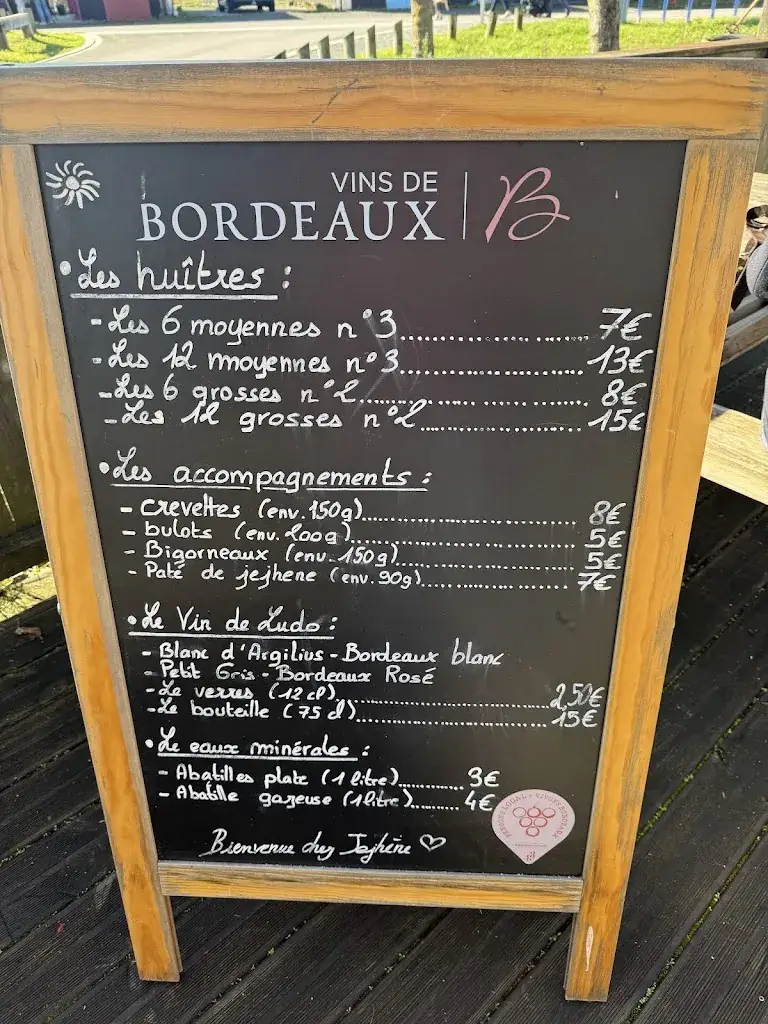 VINS DE
BORDEAUX B
• Les huîtres :
- Les 6 moyennes n°3 ........ 7€
- Les 12 moyennes n°3 ........ 13€
- Les 6 grosses n°2 ........ 8€
- Les 12 grosses n°2 ........ 15€
• Les accompagnements :
- crevettes (env. 150g) ........ 8€
- bulots (env. 200g) ........ 5€
- Bigorneaux (env. 150g) ........ 5€
- Paté de jejhene (env. 90g) ........ 7€
• Le Vin de Ludo :
- Blanc d'Argilius - Bordeaux blanc
- Petit Gris - Bordeaux Rosé
- Le verres (12 cl) ........ 2,50€
- Le bouteille (75 cl) ........ 15€
• Le eaux minérales :
- Abatilles plate (1 litre) ........ 3€
- Abatille gazeuse (1 litre) ........ 4€
Bienvenue chez Jejhène ♡